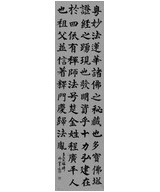 粤妙法蓮華諸佛之秘藏也多寶佛塔
證經之踊現也發明資乎十力弘建在
於四依有禪師法号楚金姓程廣平人
也祖父並信著釋門慶歸法胤